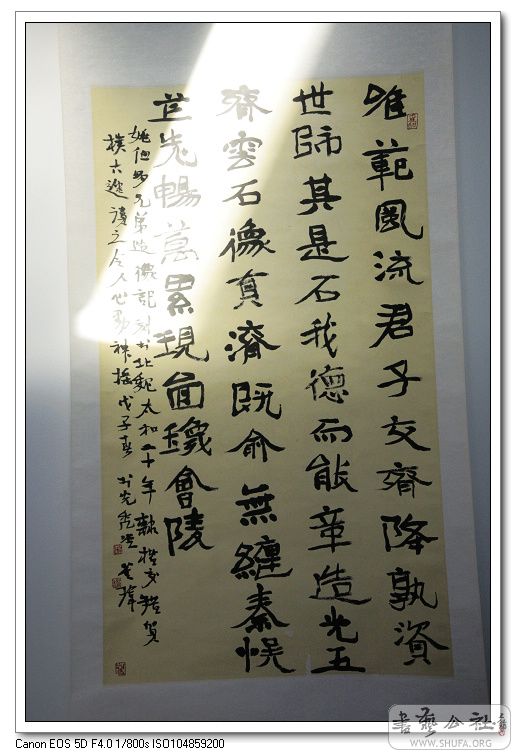 唯範風流君子交齊降孰資
世師其是石我德而能章造光五
齊雲石像育濟既俞無纏秦悮
世先暢萬累現面璣會陵
姚伯多兄弟造像記刻於北魏太和二十年隸楷交雜質
樸古 讀之令人心 神搖戊子春
書藝公社
WWW.SHUFA.ORG
Canon EOS 5D F4.0 1/800s ISO104859200